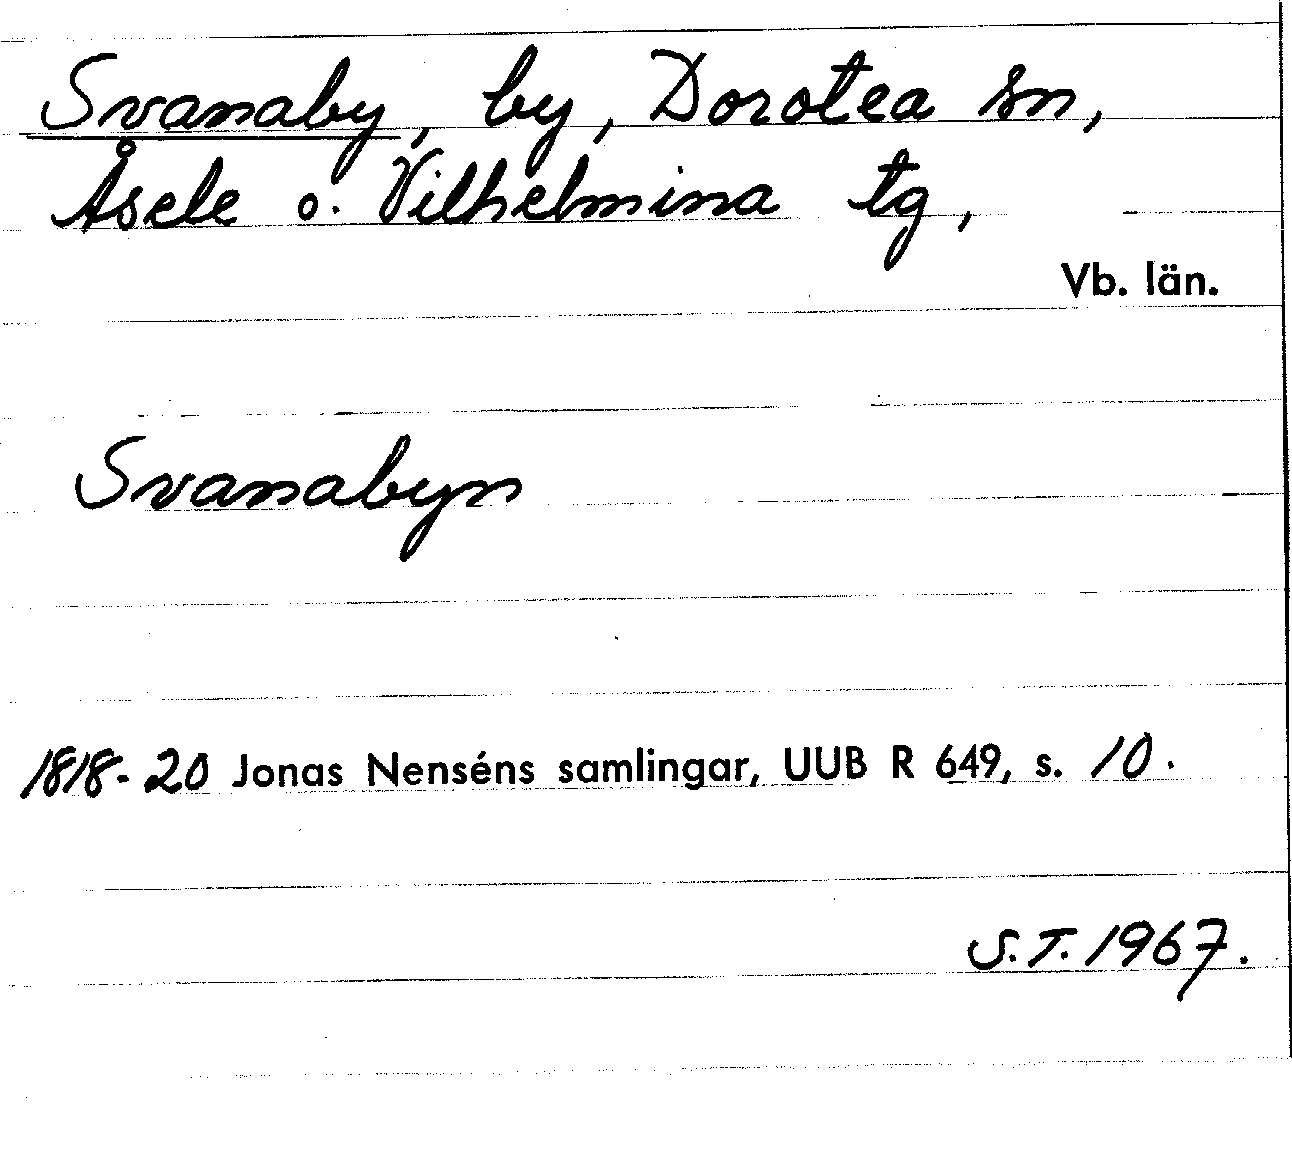 Svanaby, by, Dorotea sn,
Åsele o. Vilhelmina tg,
Vb. län.
Svanabyn
1818-20 Jonas Nenséns samlingar, UUB R 649, s. 10.
S.T. 1967.